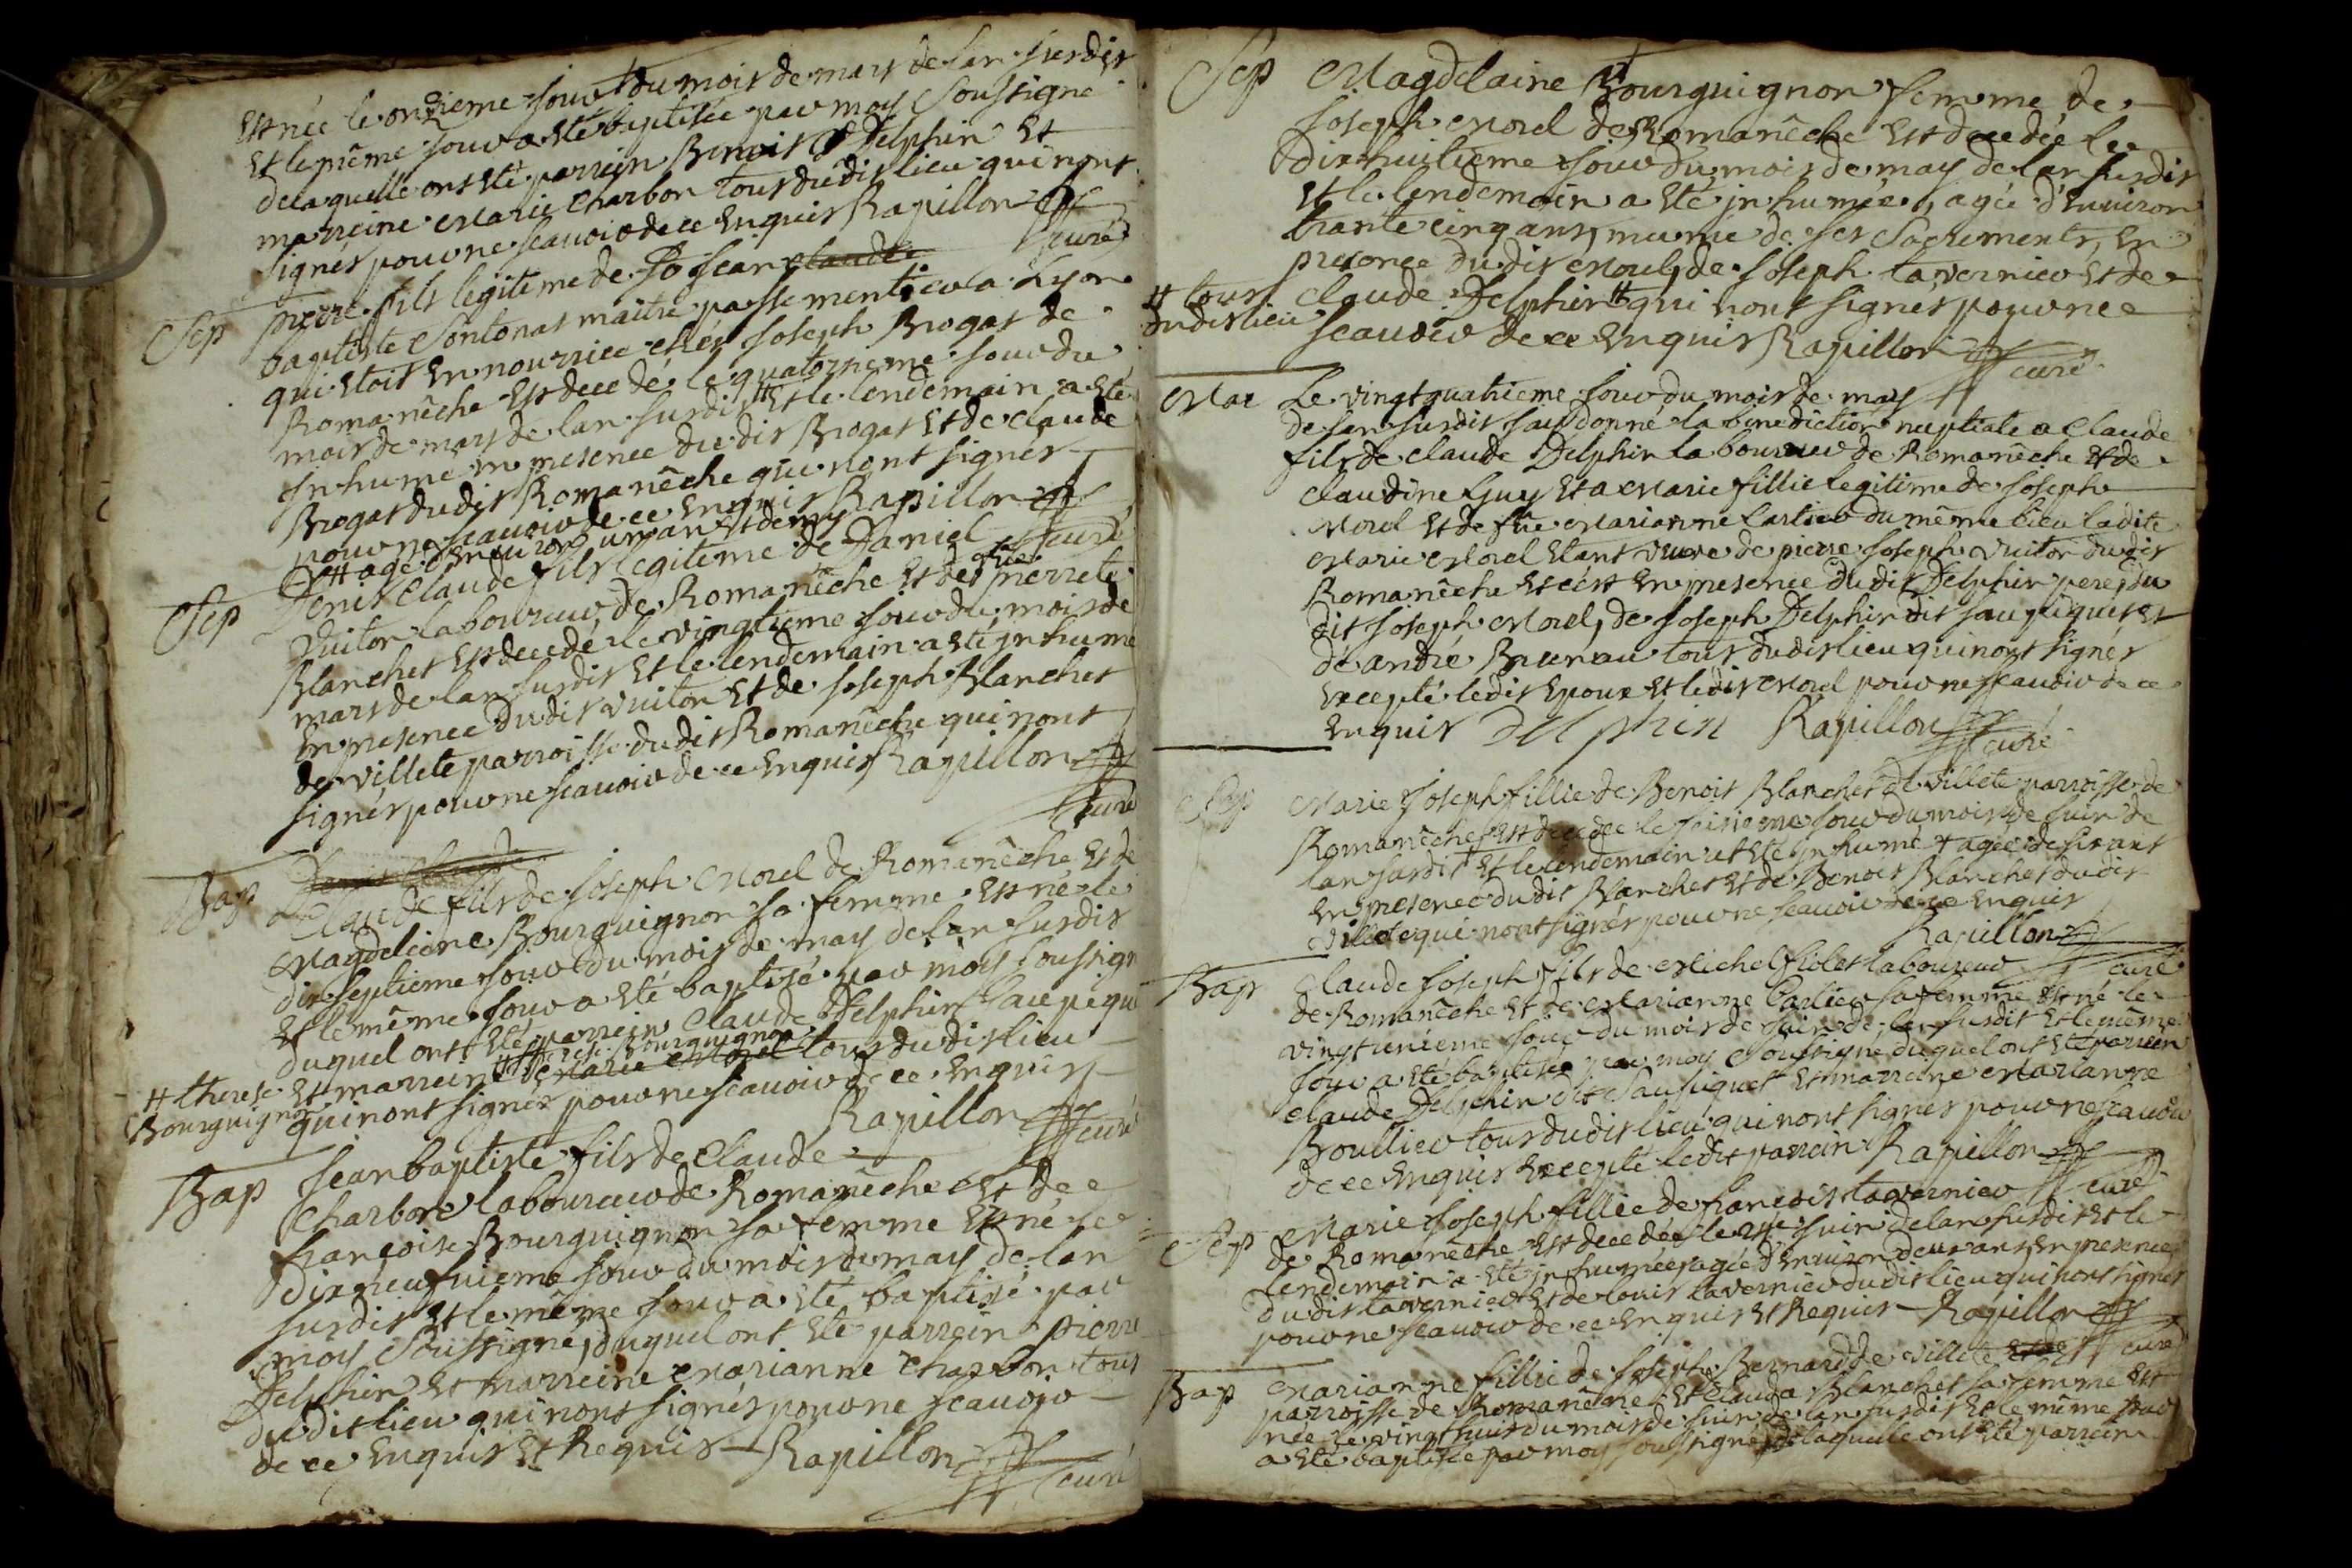 est née le onzieme jour du mois de mars de lan susdit
et le même jour a eté baptisée par moy soussigné
de laquelle ont eté parrein Benoit Delphin et
marreine Marie Charbon tous du dit lieu qui nont
signés pour ne scavoir de ce enquis Rapillon curé
Sep Pierre fils legitime de Jean claude
baptiste Sontonas maitre passementier a Lyon
qui etoit en nourrice chés Joseph Brogat de
Romanêche est decedé le quatorzieme jour du
mois de mars de lan susdit # et le lendemain a eté
inhumé en presence du dit Brogat et de Claude
Brogat du dit Romanêche qui nont signés
pour ne scavoir de ce enquis Rapillon curé
# agé d'environ un an et demy
Sep Denis Claude fils legitime de Daniel
Vuiton laboureur de Romanêche et de pierrete
Blanchet est decedé le vingtieme jour du mois de
mars de lan susdit et le lendemain a eté inhumé
en presence du dit Vuiton et de Joseph Blanchet
de villete parroisse du dit Romanêche qui nont
signés pour ne scavoir de ce enquis Rapillon curé
Denis Claude
Bap Claude fils de Joseph Morel de Romanêche et de
Magdeleine Bourguignon sa femme est né le
dix septieme jour du mois de may de lan susdit
et le même jour a eté baptisé par moy soussigné
duquel ont eté parrein Claude Delphin
# therese Bourguignon
et marreine # Marie Morel tous du dit lieu
# therese Bourguignon
qui nont signés pour ne scavoir de ce enquis
Rapillon curé
Bap Jean baptiste fils de Claude
Charbon laboureur de Romanêche et de
francoise Bourguignon sa femme est né le
dix neufvieme jour du mois de may de lan
susdit et le même jour a eté baptisé par
moy soussigné, duquel ont eté parrein Pierre
Delphin et marreine Marianne Charbon tous
du dit lieu qui nont signés pour ne scavoir
de ce enquis et Requis Rapillon curé
Sep Magdelaine Bourguignon femme de
Joseph Morel de Romanêche est decedée le
dix huitieme jour du mois de may de lan susdit
et le lendemain a eté inhumée, agée d'environ
trante cinq ans, munie de ses Sacrements, en
presence du dit Morel, de Joseph tavernier et de
Claude Delphin # qui nont signés pour ne
# tous du dit lieu
scavoir de ce enquis Rapillon curé
Mar Le vingt quatrieme jour du mois de may
de lan susdit jay donné la benediction nuptiale a Claude
fils de Claude Delphin laboureur de Romanêche et de
Claudine Guy et a Marie fillie legitime de Joseph
Morel et de fûe Marianne Carlier du même lieu la dite
Marie Morel etant veuve de pierre Joseph Vuiton du dit
Romanêche et c'est en presence du dit Delphin pere, du
dit Joseph Morel, de Joseph Delphin dit saupiquet et
de andré tous du dit lieu qui nont signés
excepté le dit epoux et le dit Morel pour ne scavoir de ce
enquis Delphin Rapillon curé
Sep Marie Joseph fillie de Benoit Blanchet de villete parroisse de
Romanêche est decedée le jour du mois de Juin de
lan susdit et le lendemain a eté inhumé + agée de six ans
en presence du dit Blanchet et de Benoit Blanchet du dit
villete qui nont signés pour ne scavoir de ce enquis
Rapillon curé
Bap Claude Joseph fils de Michel fiolet laboureur
de Romanêche et de Marianne Carlier sa femme est né le
vingt unieme jour du mois de Juin de lan susdit et le même
jour a eté baptisé par moy soussigné, duquel ont eté parrein
Claude Delphin dit Saupiquet et marreine Marianne
Boullier tous du dit lieu qui nont signés pour ne scavoir
de ce enquis excepté le dit parrein Rapillon curé
Sep Marie Joseph fillie de francois tavernier
de Romanêche est decedée le Juin de lan susdit et le
lendemain a eté inhumée, agée d'environ deux ans, en presence
du dit tavernier et de louis tavernier du dit lieu qui nont signés
pour ne scavoir de ce enquis et Requis Rapillon curé
Bap Marianne fillie de Joseph Bernard de villete et de
parroisse de Romanêche et de Clauda Blanchet sa femme est
née le vingt huit du mois de Juin de lan susdit et le même jour
a eté baptisée par moy soussigné, de laquelle ont eté parrein